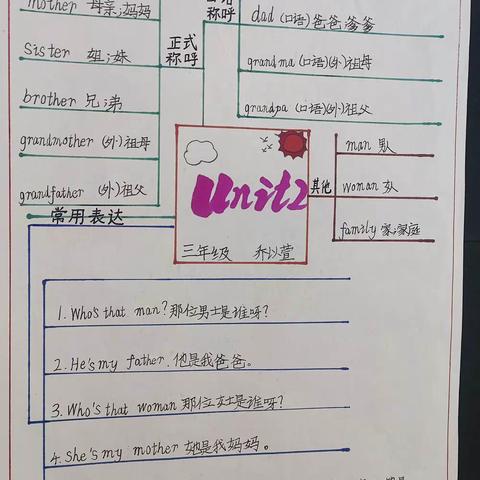 mother 母亲;妈妈
sister 姐;妹
brother 兄;弟
grandmother (外)祖母
grandfather (外)祖父
正式
称呼
称呼
dad (口语)爸爸;爹爹
grandma (口语)(外)祖母
grandpa (口语)(外)祖父
Unit2
三年级 乔以萱
其他
man 男人
woman 女人
family 家;家庭
常用表达
1. Who's that man? 那位男士是谁呀?
2. He's my father. 他是我爸爸。
3. Who's that woman 那位女士是谁呀?
4. She's my mother 她是我妈妈。